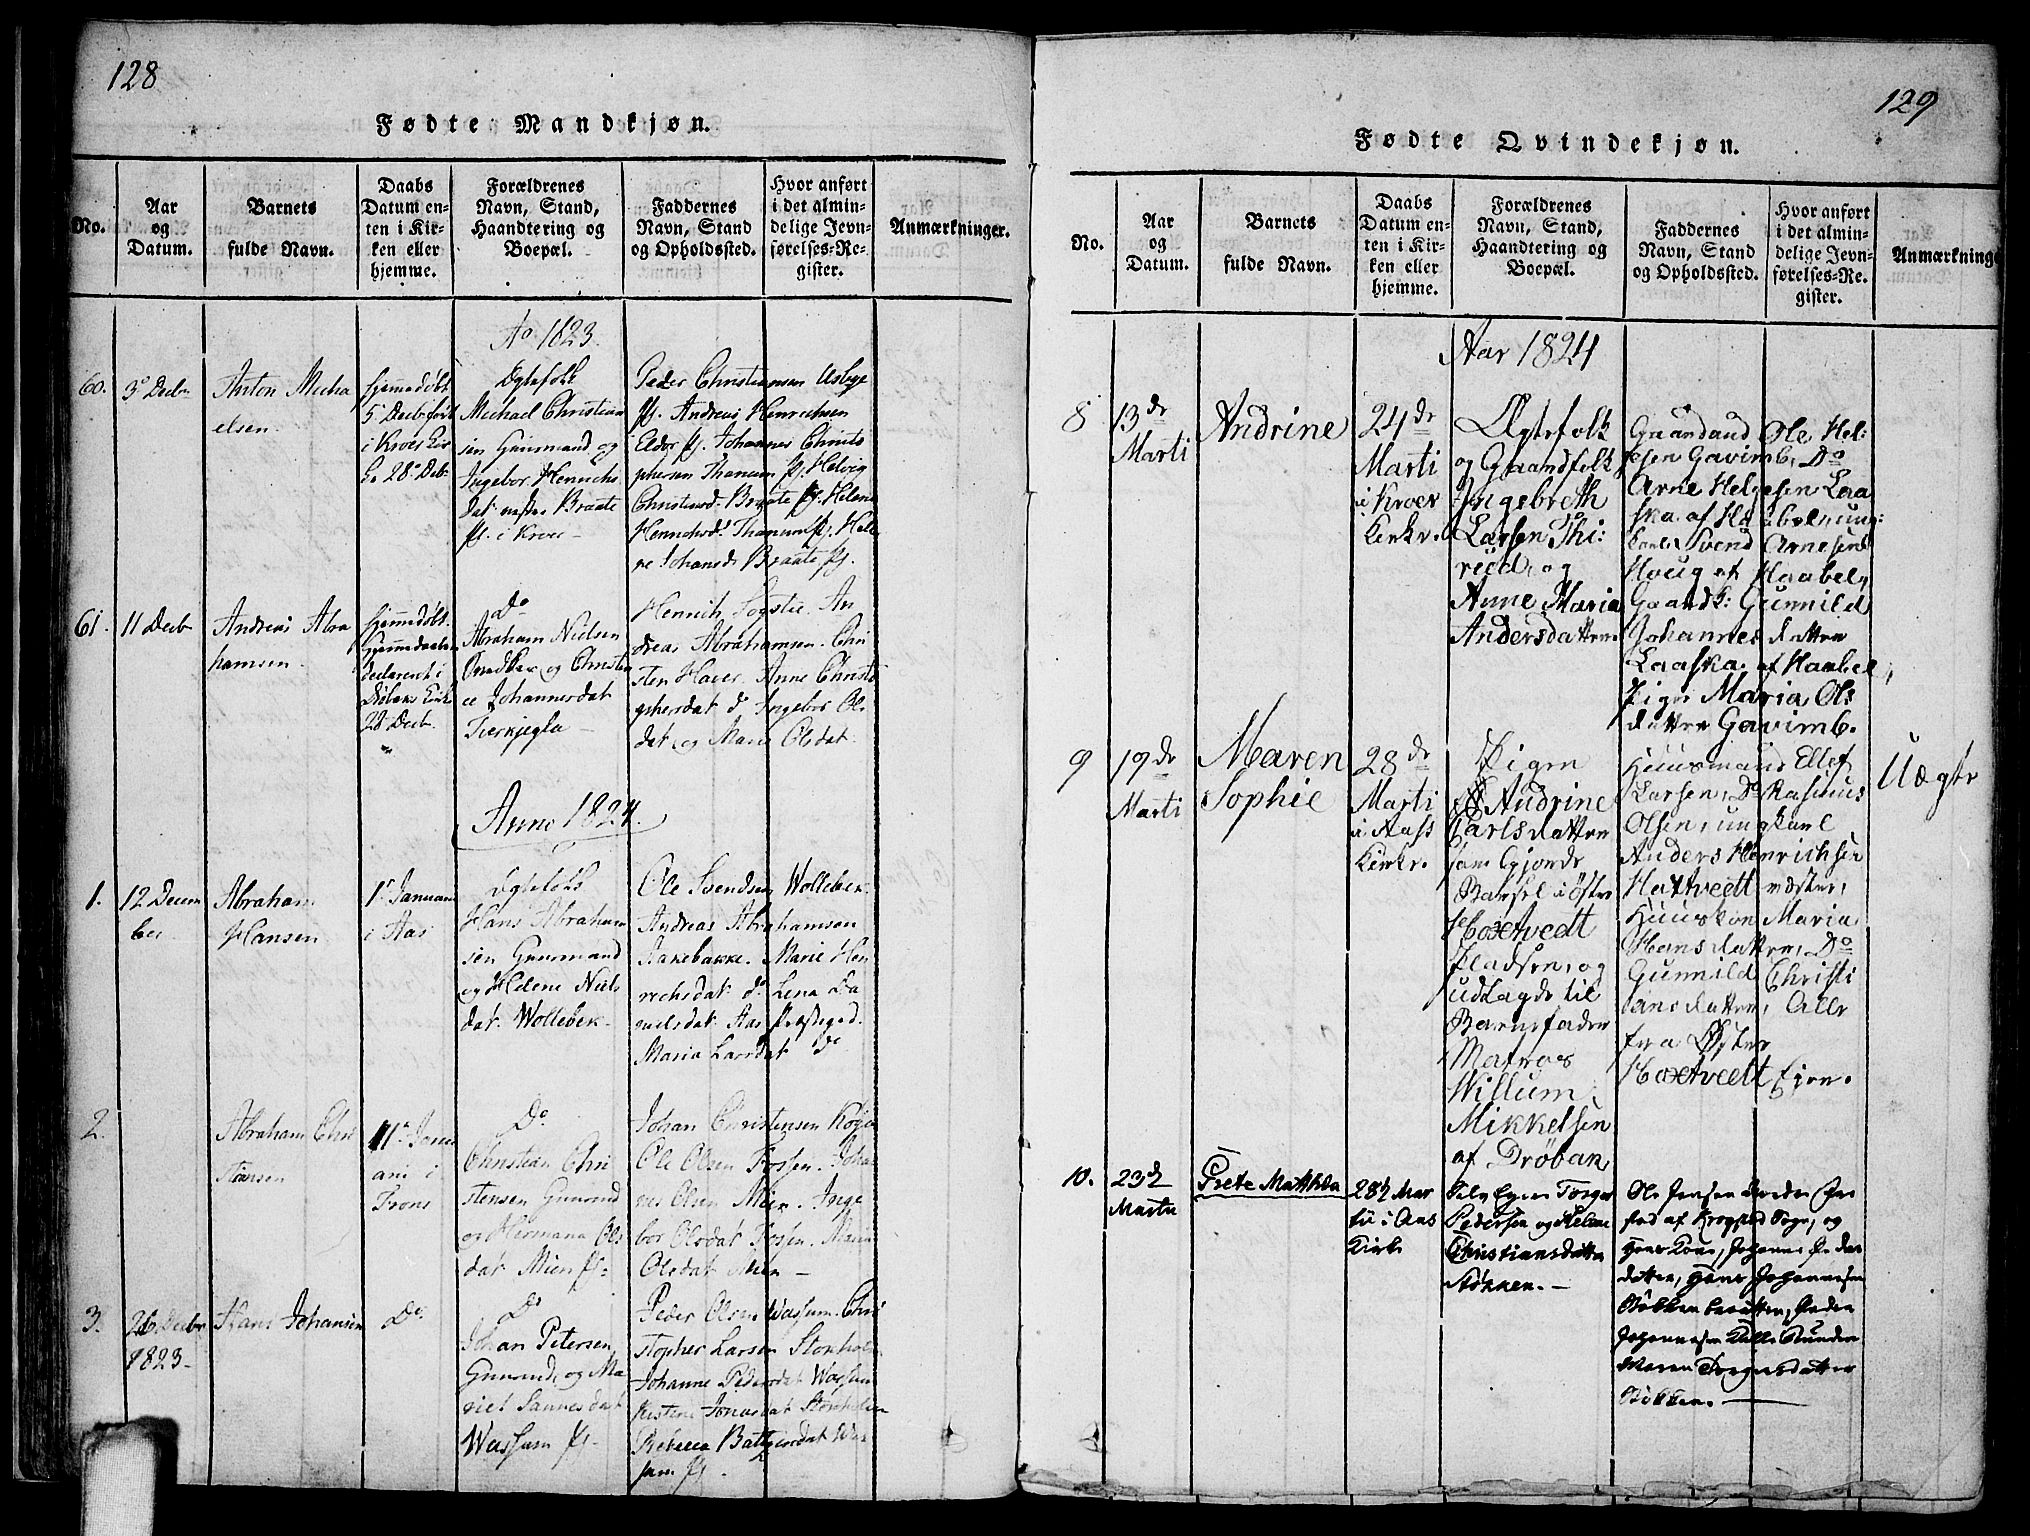 128
Fødte Mandkjøn.
No.
Aar
og
Datum.
Barnets
fulde Navn.
Daabs
Datum en-
ten i Kir-
ken eller
hjemme.
Forældrenes
Navn, Stand,
Haandtering og
Boepæl.
Faddernes
Navn, Stand
og Opholdssted.
Hvor anført
i det almin-
delige Jevn-
førelses-Re-
gister.
Anmærkninger.
Ao 1823
60.
3 Decbr
Anton Micha
elsen
hjemmedøbt
5 Decbr
i Kroer Kir
28 Decbr
Egtefolk
Michael Christian
sen Huusmand og
Ingebor Henrichs
dat Braate
i Kroer
Peder Christiansen
Andreas Henrichsen
Eldor Johannes Christo
phersen Thanum Helvig
Christiansd. Braate Helene
Henrichsd. Thanum Hele
ne Johansd. Braate
61.
11 Decb
Andreas Abra
hamsen
hjemmedøbt
declareret i
Drøbaks Kirk
28 Decb.
Do
Abraham Nielsen
Snedker og Christen
ce Johannesdat
Henrich An
dreas Abrahamsen. Chri
sten Haver. Anne Christo
phersdat do Ingebor Ols
dat. og Marie Olsdat.
Anno 1824.
1.
12 Decem
ber
Abraham
Hansen
1 Januari
i Aas
Egtefolk
Hans Abraham
sen Huusmand
og Helene Niels
dat. Wollebek.
Ole Svendsen Wollebek.
Andreas Abrahamsen
Aakebakke. Marie Hen
richsdat do Lena Da
nielsdat. Aas Præstegd.
Maria Larsdat Do
2.
Abraham Chri
stiansen
11 Janu
ari i
Frons
Do.
Christian Chri
stensen Huusmd
og Hermana Ols
dat Mien
Johan Christensen
Ole Olsen Fossen. Joha
nes Olsen Mien. Inge
bor Olsdat Fossen. Mari
Olsdat Mien —
3.
26 Decbr
1823
Hans Johansen
Do.
Do
Johan Petersen
Huusmd, og Ma
riet Sannesdat
Wassum
Peder Olsen Wassum. Chri
stopher Larsen Storholm
Johanne Pedersdat Wassum
Kirstine Jonasdat
Rebecca Wa
sum
129
Fødte Qvindekjøn.
No.
Aar
og
Datum.
Barnets
fulde Navn.
Daabs
Datum en-
ten i Kir-
ken eller
hjemme.
Forældrenes
Navn, Stand,
Haandtering og
Boepæl.
Faddernes
Navn, Stand
og Opholdssted.
Hvor anført
i det almin-
delige Jevn-
førelses-Re-
gister.
Anmærkninge
Aar 1824
8
13de
Marti
Andrine
24de
Marti
i Kroer
Kirke.
Ægtefolk
og Gaardfolk
Ingebreth
Larsen Thi:
rüd, og
Anne Maria
Andersdatter
Gaardmd Ole Hel:
gesen Gavimb, Do
Arne Helgesen Laa
ska af Haabel, ung:
karl Svend Arnesen
Houg af Haabel,
Gaardk: Gunnild
Johannes datter
Laaska af Haabel,
Pige Maria Ols
datter Gavimb.
9
19de
Marti
Maren
Sophie
28de
Marti
i Aass
Kirke.
Pigen
Andrine
Carlsdatter
som gjorde
Barsel i Øster
Hoxtvedt
Pladsen, og
udlagde til
Barnefader
Matros
Willum
Mikkelsen
af Drøbak
Huusmand Ellef
Larsen, Do Rasmus
Olsen, ungkarl
Anders Henrichsen
Hoxtvedt vester,
Huuskone Maria
Hansdatter, Do
Gunnild Christi
ansdatter, Alle
fra Øster
Hoxtvedt Ejer.
Uægte
10.
23de
Martii
Grete Mathilda
28de Mar
tii i Aas
Kirke
Selv Eyere Torger
Pedersen og Helene
Christiansdatter
Støkken. —
Ole Jensen
stad af Krogsted Sogn, og
Hans Kone, Johanne Peders
datter, Hans Johannesen
Støkken Peder
Johannesen
Maren Torgersdatter
Støkken. —